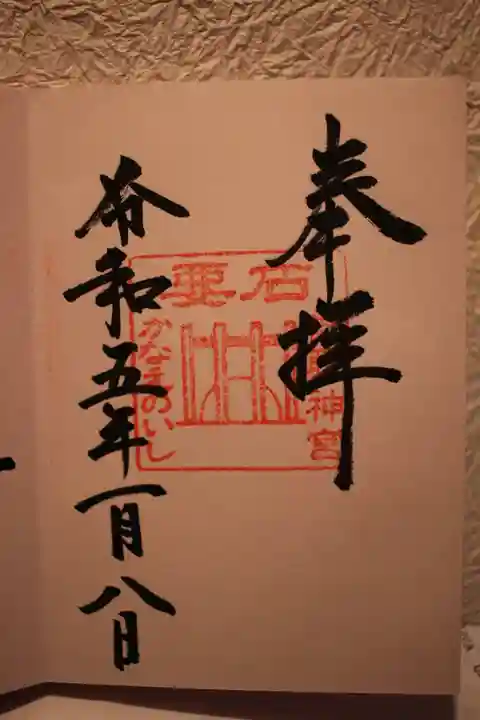 奉拝
神宮
要石
かな のいし
令和五年一月八日